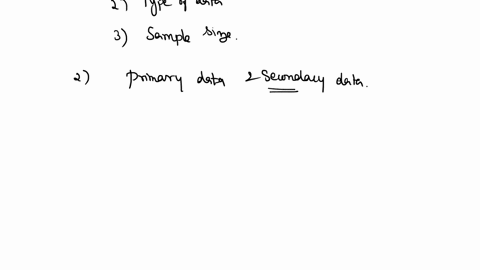 2) Type of data
3) Sample size.
2) Primary data & Secondary data.